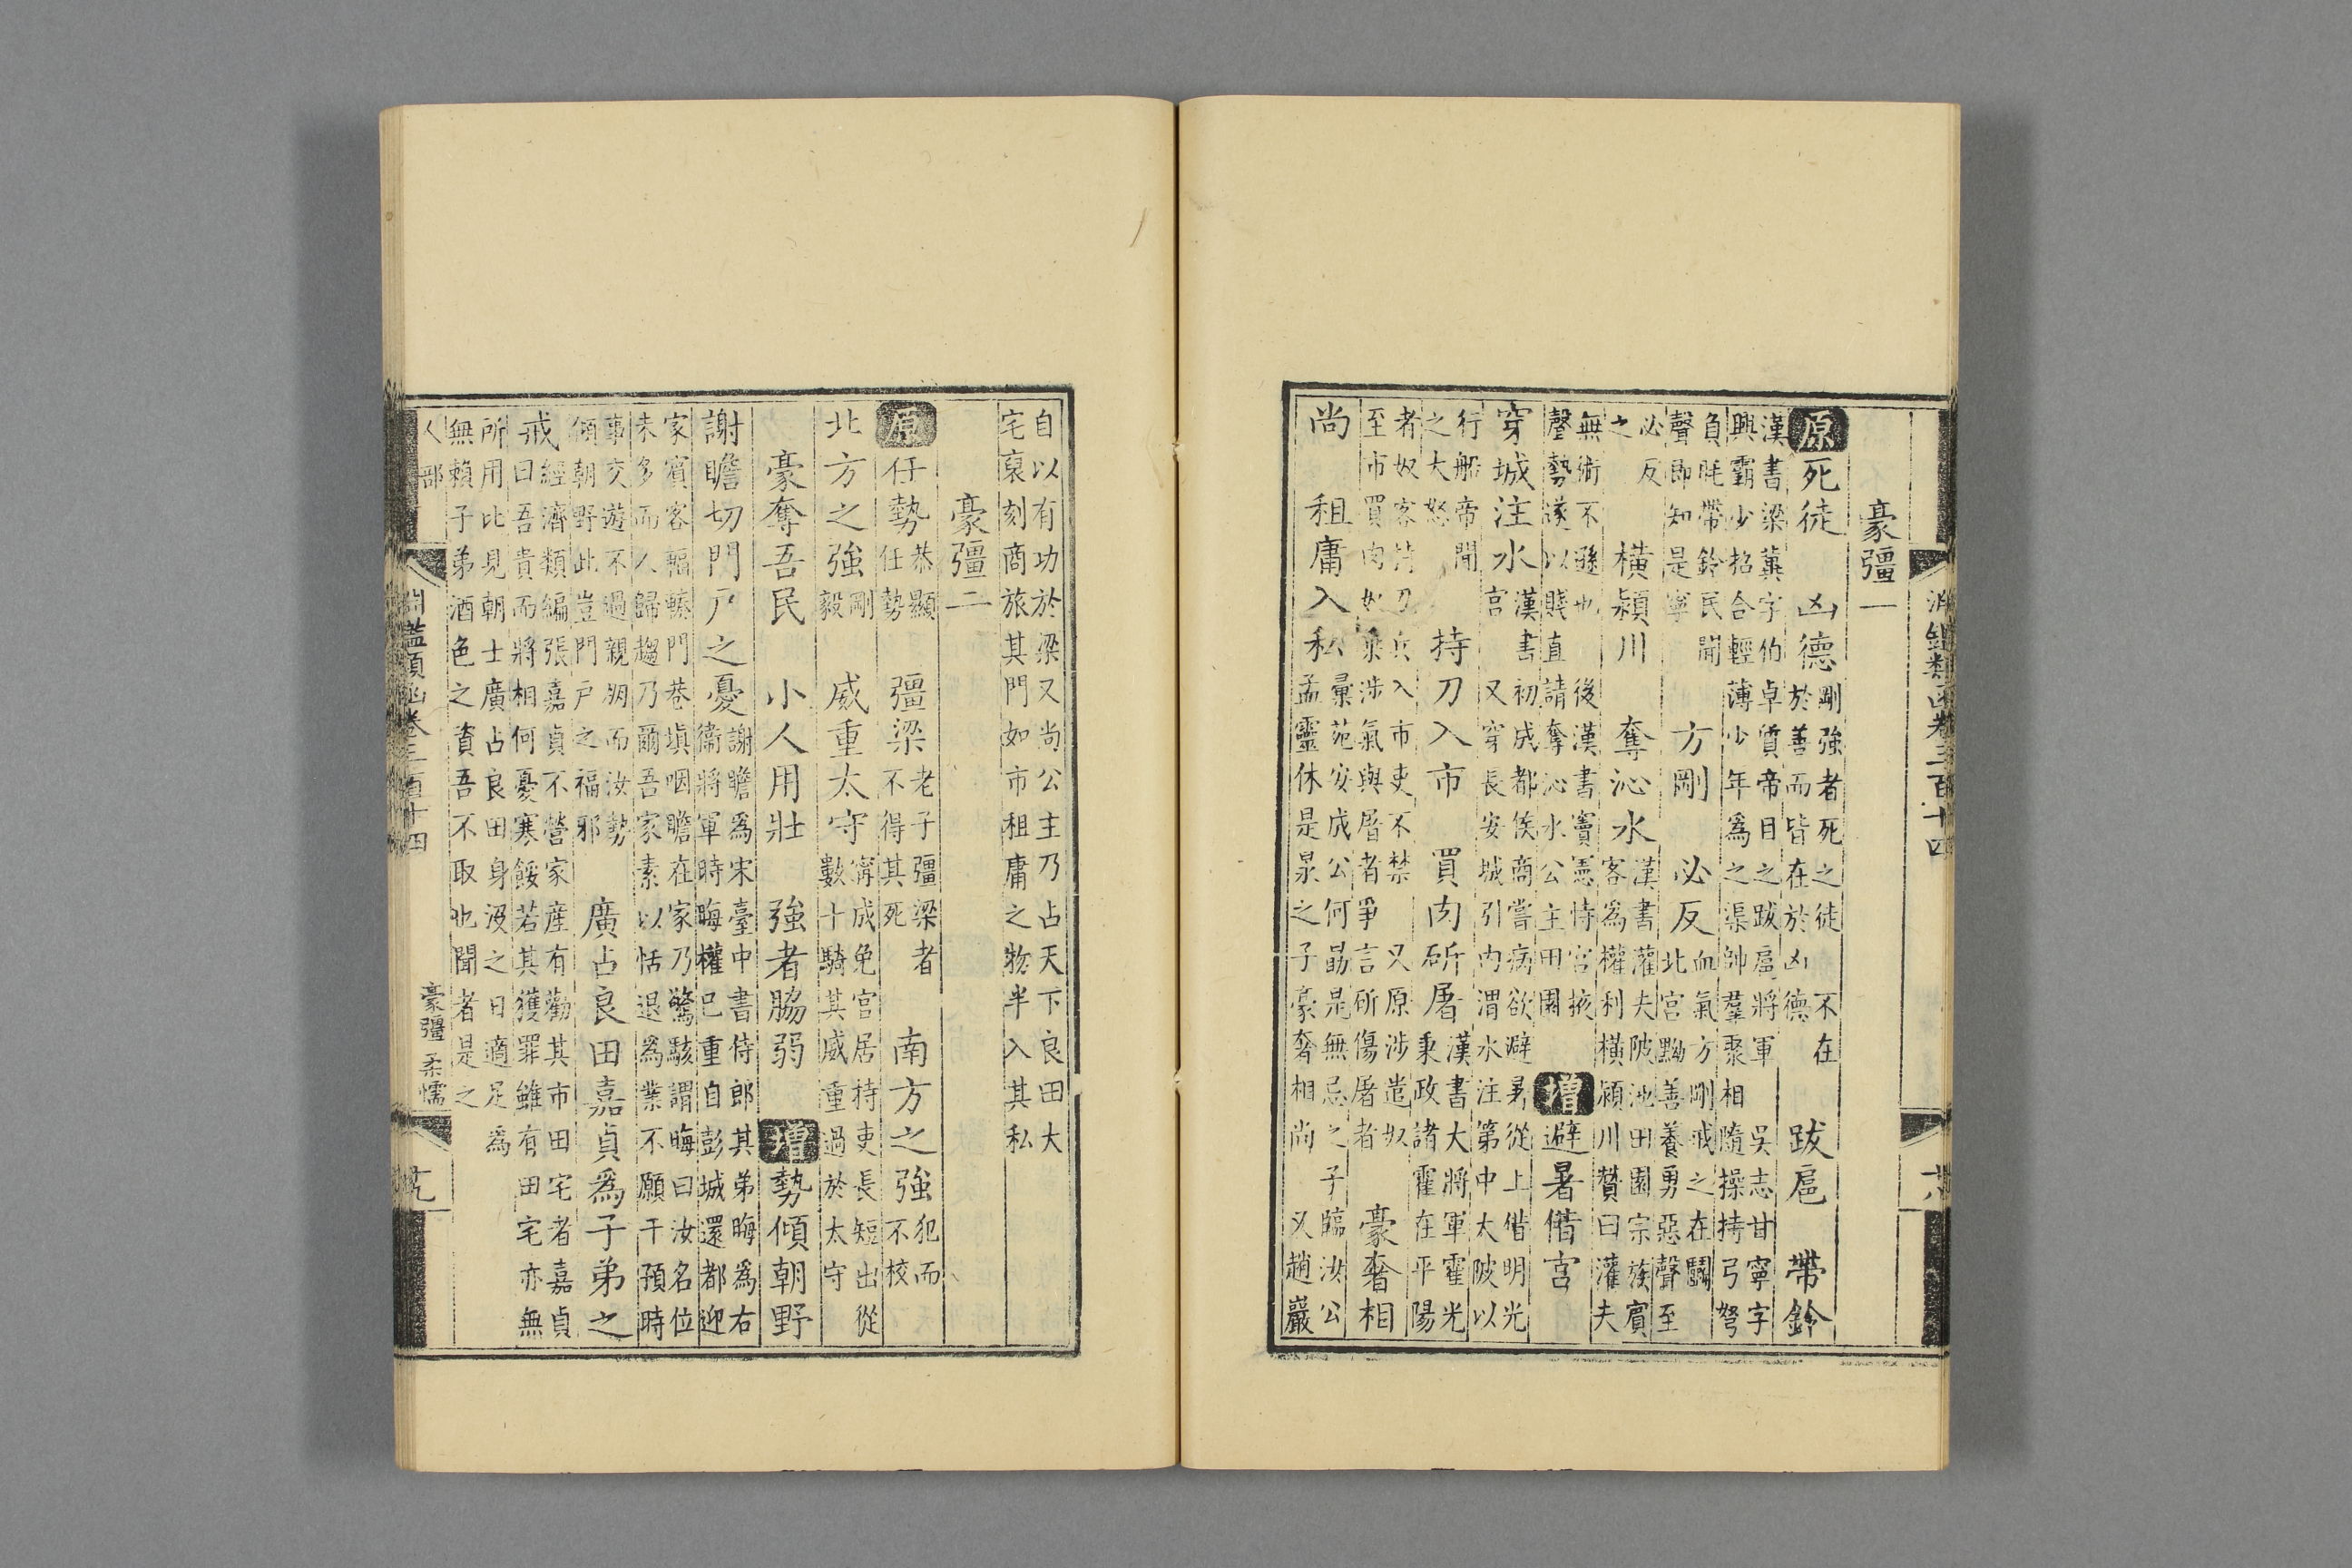 淵鑑類函卷三百十四 十八
豪彊一
原死徒 凶德 剛強者死之徒 不在
於善而皆在於凶德 跋扈 帶鈴
漢書梁冀字伯卓質帝目之跋扈將軍 吳志甘寧字
興霸少招合輕薄少年為之渠帥羣聚相隨操持弓弩
負毦帶鈴民聞
聲即知是寧 方剛 必反 血氣方剛戒之在鬭
北宮黝善養勇惡聲至
必反
之 橫潁川 奪沁水 漢書灌夫陂池田園宗族賓
客為權利橫潁川贊曰灌夫
無術不遜也 後漢書竇憲恃宮掖
聲勢遂以賤直請奪沁水公主田園 增避暑借宮
穿城注水 漢書初成都侯商嘗病欲避暑從上借明光
宮 又穿長安城引內渭水注第中大陂以
行船帝聞
之大怒 持刀入市 買肉斫屠 漢書大將軍霍光
秉政諸霍在平陽
者奴客持刀兵入市吏不禁 又原涉遣奴
至市買肉奴乘涉氣與屠者爭言斫傷屠者 豪奢相
尚 租庸入私 彙苑安成公何勗是無忌之子臨汝公
孟靈休是泉之子豪奢相尚 又趙巖
自以有功於梁又尚公主乃占天下良田大
宅裒刻商旅其門如市租庸之物半入其私
豪彊二
原任勢 恭顯
任勢 彊梁 老子彊梁者
不得其死 南方之強 犯而
不校
北方之強 剛
毅 威重太守 甯成免官居持吏長短出從
數十騎其威重過於太守
豪奪吾民 小人用壯 強者脇弱 增勢傾朝野
謝瞻切門戶之憂 謝瞻為宋臺中書侍郎其弟晦為右
衛將軍時晦權已重自彭城還都迎
家賓客輻輳門巷塡咽瞻在家乃驚駭謂晦曰汝名位
未多而人歸趨乃爾吾家素以恬退為業不願干預時
事交遊不過親朋而汝勢
傾朝野此豈門戶之福邪 廣占良田嘉貞為子弟之
戒 經濟類編張嘉貞不營家產有勸其市田宅者嘉貞
曰吾貴而將相何憂寒餒若其獲罪雖有田宅亦無
所用比見朝士廣占良田身沒之日適足為
無賴子弟酒色之資吾不取也聞者是之
人部 淵鑑類函卷三百十四 豪彊 柔懦 十九